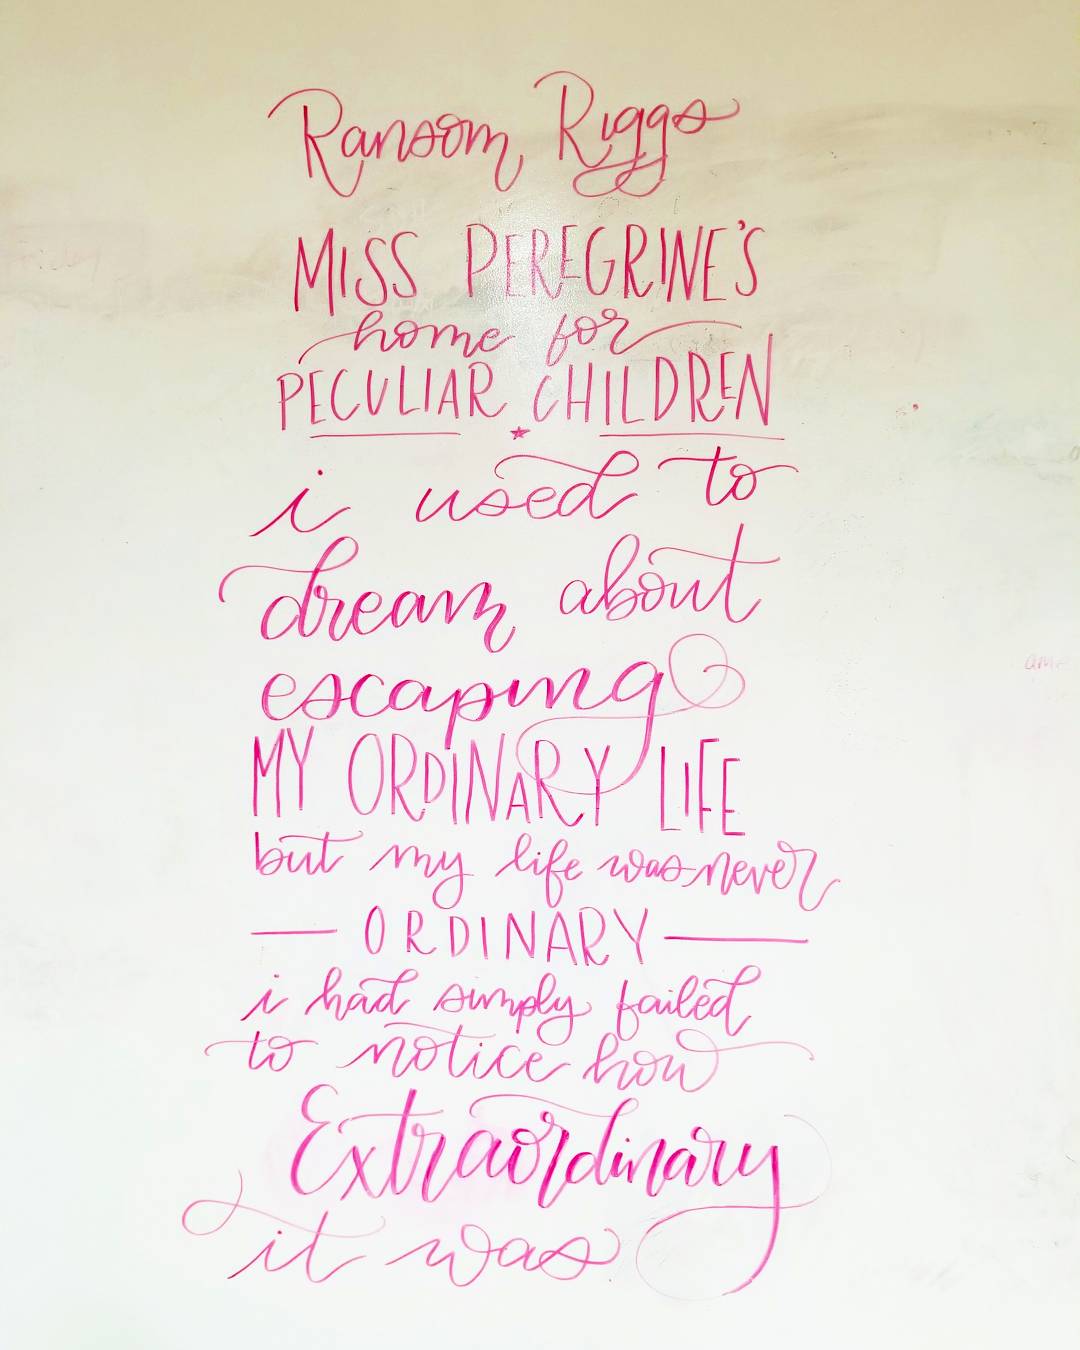 Ransom Riggs
MISS PEREGRINE'S
home for
PECULIAR CHILDREN
i used to
dream about
escaping
MY ORDINARY LIFE
but my life was never
ORDINARY
i had simply failed
to notice how
Extraordinary
it was